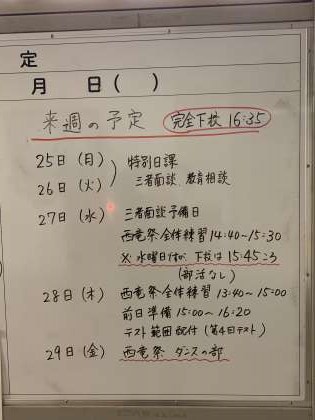 定
月 日( )
来週の予定 完全下校 16:35
25日(月) 特別日課
26日(火) 三者面談、教育相談
27日(水) 三者面談予備日
西竜祭全体練習 14:40~15:30
※水曜日だが、下校は15:45ころ
(部活なし)
28日(木) 西竜祭全体練習 13:40~15:00
前日準備 15:00~16:20
テスト範囲配付(第4回テスト)
29日(金) 西竜祭 ダンスの部